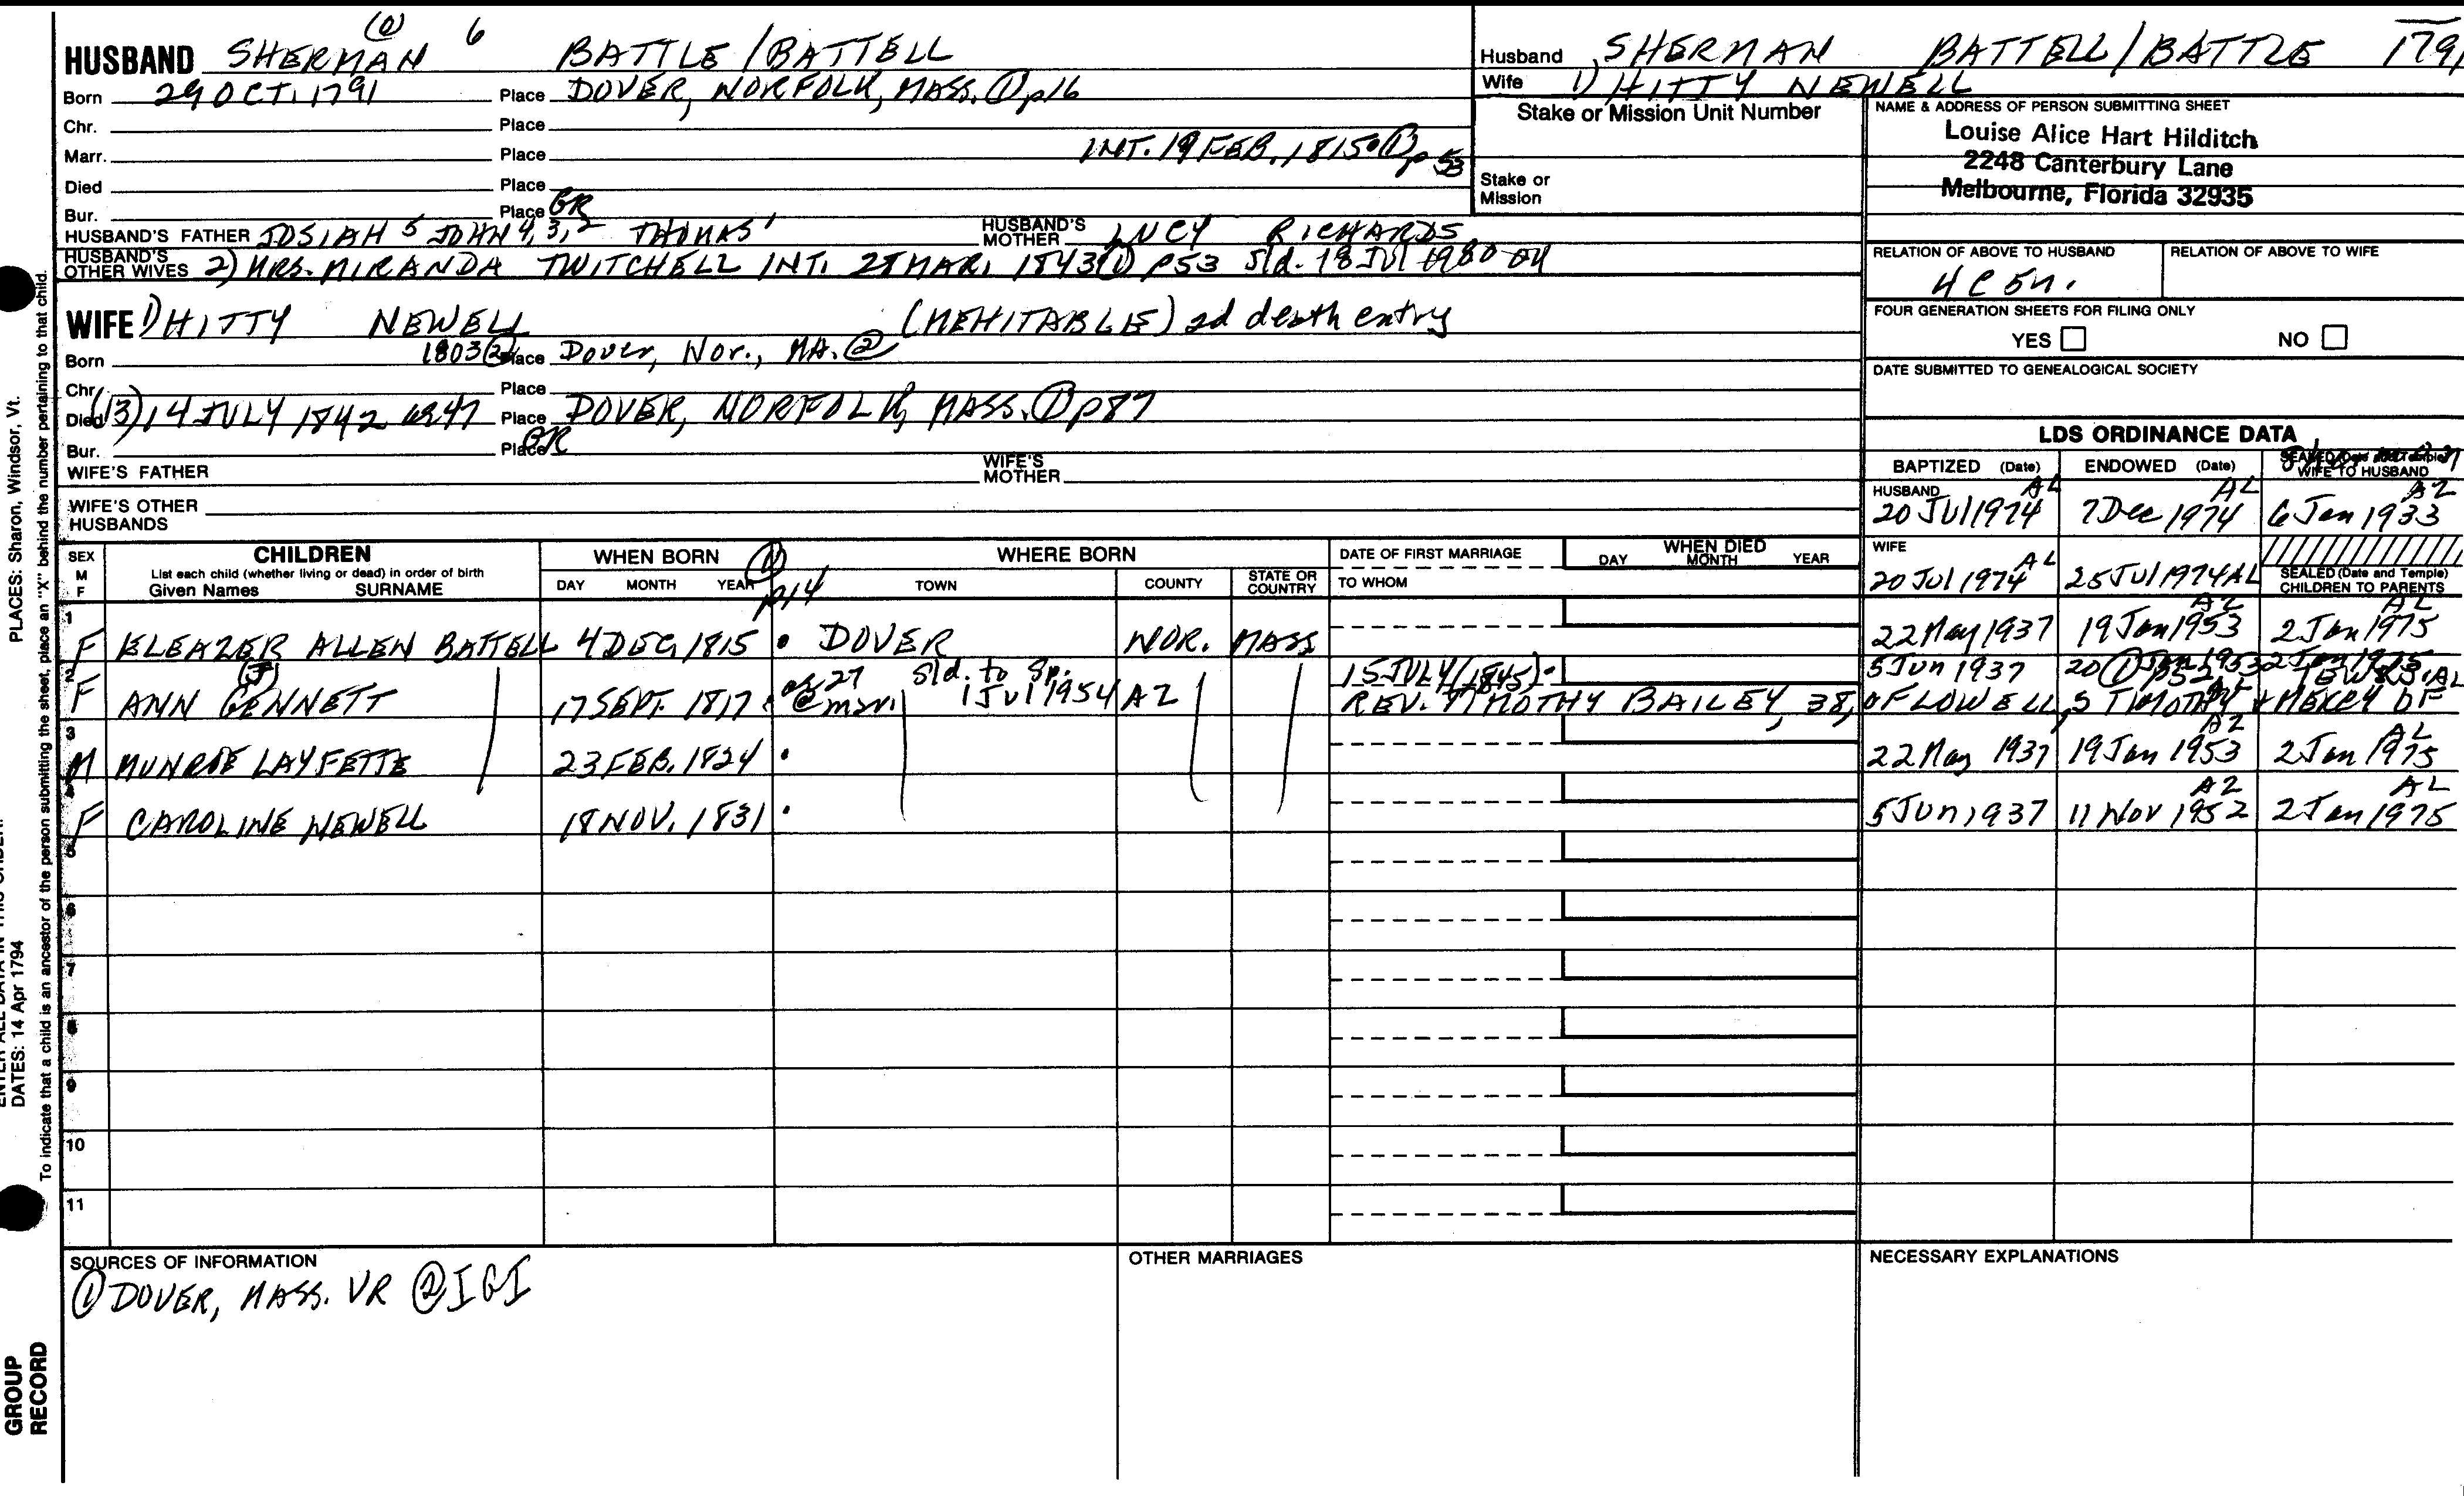 (0) 6
HUSBAND SHERMAN BATTLE / BATTELL
Born 29 OCT. 1791 Place DOVER, NORFOLK, MASS. ① p16
Chr. Place
Marr. Place INT. 19 FEB. 1815 ① p 53
Died Place
Bur. Place GR
HUSBAND'S FATHER JOSIAH 5 JOHN 4, 3, 2 THOMAS 1 HUSBAND'S MOTHER LUCY RICHARDS
HUSBAND'S OTHER WIVES 2) MRS. MIRANDA TWITCHELL INT. MAR. 1843 ① p53 Sld. 18 Jul 1980
WIFE 1) HITTY NEWELL (MEHITABLE) 2d death entry
Born 1803 ② Place Dover, Nor., MA. ②
Chr. Place
Died (13) 14 JULY 1842 47 Place DOVER, NORFOLK, MASS. ① p87
Bur. Place GR
WIFE'S FATHER WIFE'S MOTHER
WIFE'S OTHER HUSBANDS
Husband SHERMAN BATTELL / BATTLE 1791
Wife 1) HITTY NEWELL
Stake or Mission Unit Number
Stake or Mission
NAME & ADDRESS OF PERSON SUBMITTING SHEET
Louise Alice Hart Hilditch
2248 Canterbury Lane
Melbourne, Florida 32935
RELATION OF ABOVE TO HUSBAND RELATION OF ABOVE TO WIFE
4C 5
FOUR GENERATION SHEETS FOR FILING ONLY
YES NO
DATE SUBMITTED TO GENEALOGICAL SOCIETY
LDS ORDINANCE DATA
BAPTIZED (Date) ENDOWED (Date) WIFE TO HUSBAND
HUSBAND AL AL AZ
20 Jul 1974 7 Dec 1974 6 Jan 1933
WIFE
20 Jul 1974 AL 25 Jul 1974 AL SEALED (Date and Temple) CHILDREN TO PARENTS
SEX M F CHILDREN WHEN BORN ① p14 WHERE BORN DATE OF FIRST MARRIAGE WHEN DIED
List each child (whether living or dead) in order of birth
Given Names SURNAME DAY MONTH YEAR TOWN COUNTY STATE OR COUNTRY TO WHOM DAY MONTH YEAR
1 F ELEAZER ALLEN BATTELL 4 DEC. 1815 DOVER NOR. MASS 22 May 1937 19 Jan 1953 AZ 2 Jan 1975 AL
2 F ANN (J) GENNETT 17 SEPT. 1817 27 @ Sld. to Sp. 1 Jul 1954 AZ 15 JULY (1845) 5 Jun 1937 20 Jan 1953 2 Jan 1975
REV. TIMOTHY BAILEY, 38, OF LOWELL, S TIMOTHY & MERCY OF
3 M MUNROE LAYFETTE 23 FEB. 1824 22 May 1937 19 Jan 1953 AZ 2 Jan 1975 AL
4 F CAROLINE NEWELL 18 NOV. 1831 5 Jun 1937 11 Nov 1952 AZ 2 Jan 1975 AL
5
6
7
8
9
10
11
SOURCES OF INFORMATION OTHER MARRIAGES NECESSARY EXPLANATIONS
① DOVER, MASS. VR ② IGI
PLACES: Sharon, Windsor, Vt.
DATES: 14 Apr 1794
To indicate that a child is an ancestor of the person submitting the sheet, place an "X" behind the number pertaining to that child.
GROUP
RECORD